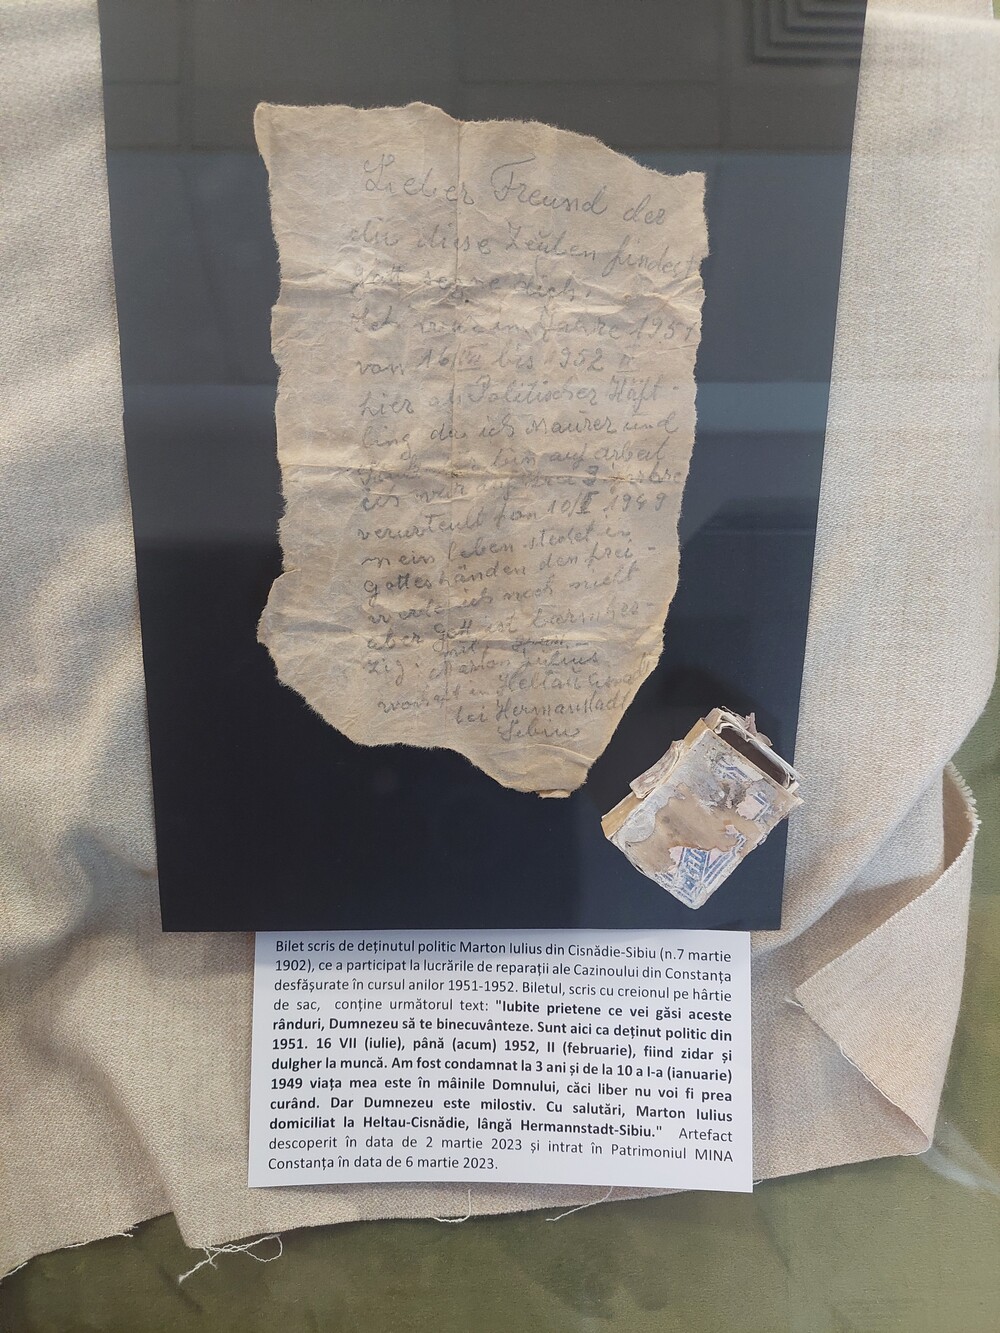 Lieber Freund der
du diese Zeulen findest
gott segne dich.
Ich war im Jahre 1951
von 16/VII bis 1952 II
hier als Politischer Häft-
ling da ich Maurer und
bin auf arbeit
ich war auf 3 jahre
verurteult von 10/I 1949
mein leben stehet in
gotteshänden den frei-
werde ich noch nicht
aber gott ist barmher-
zig. mit
Marton Julius
wonhaft in Heltau
bei Hermanstadt
Sebiu
Bilet scris de deținutul politic Marton Iulius din Cisnădie-Sibiu (n.7 martie
1902), ce a participat la lucrările de reparații ale Cazinoului din Constanța
desfășurate în cursul anilor 1951-1952. Biletul, scris cu creionul pe hârtie
de sac, conține următorul text: "Iubite prietene ce vei găsi aceste
rânduri, Dumnezeu să te binecuvânteze. Sunt aici ca deținut politic din
1951. 16 VII (iulie), până (acum) 1952, II (februarie), fiind zidar și
dulgher la muncă. Am fost condamnat la 3 ani și de la 10 a l-a (ianuarie)
1949 viața mea este în mâinile Domnului, căci liber nu voi fi prea
curând. Dar Dumnezeu este milostiv. Cu salutări, Marton Iulius
domiciliat la Heltau-Cisnădie, lângă Hermannstadt-Sibiu." Artefact
descoperit în data de 2 martie 2023 și intrat în Patrimoniul MINA
Constanța în data de 6 martie 2023.